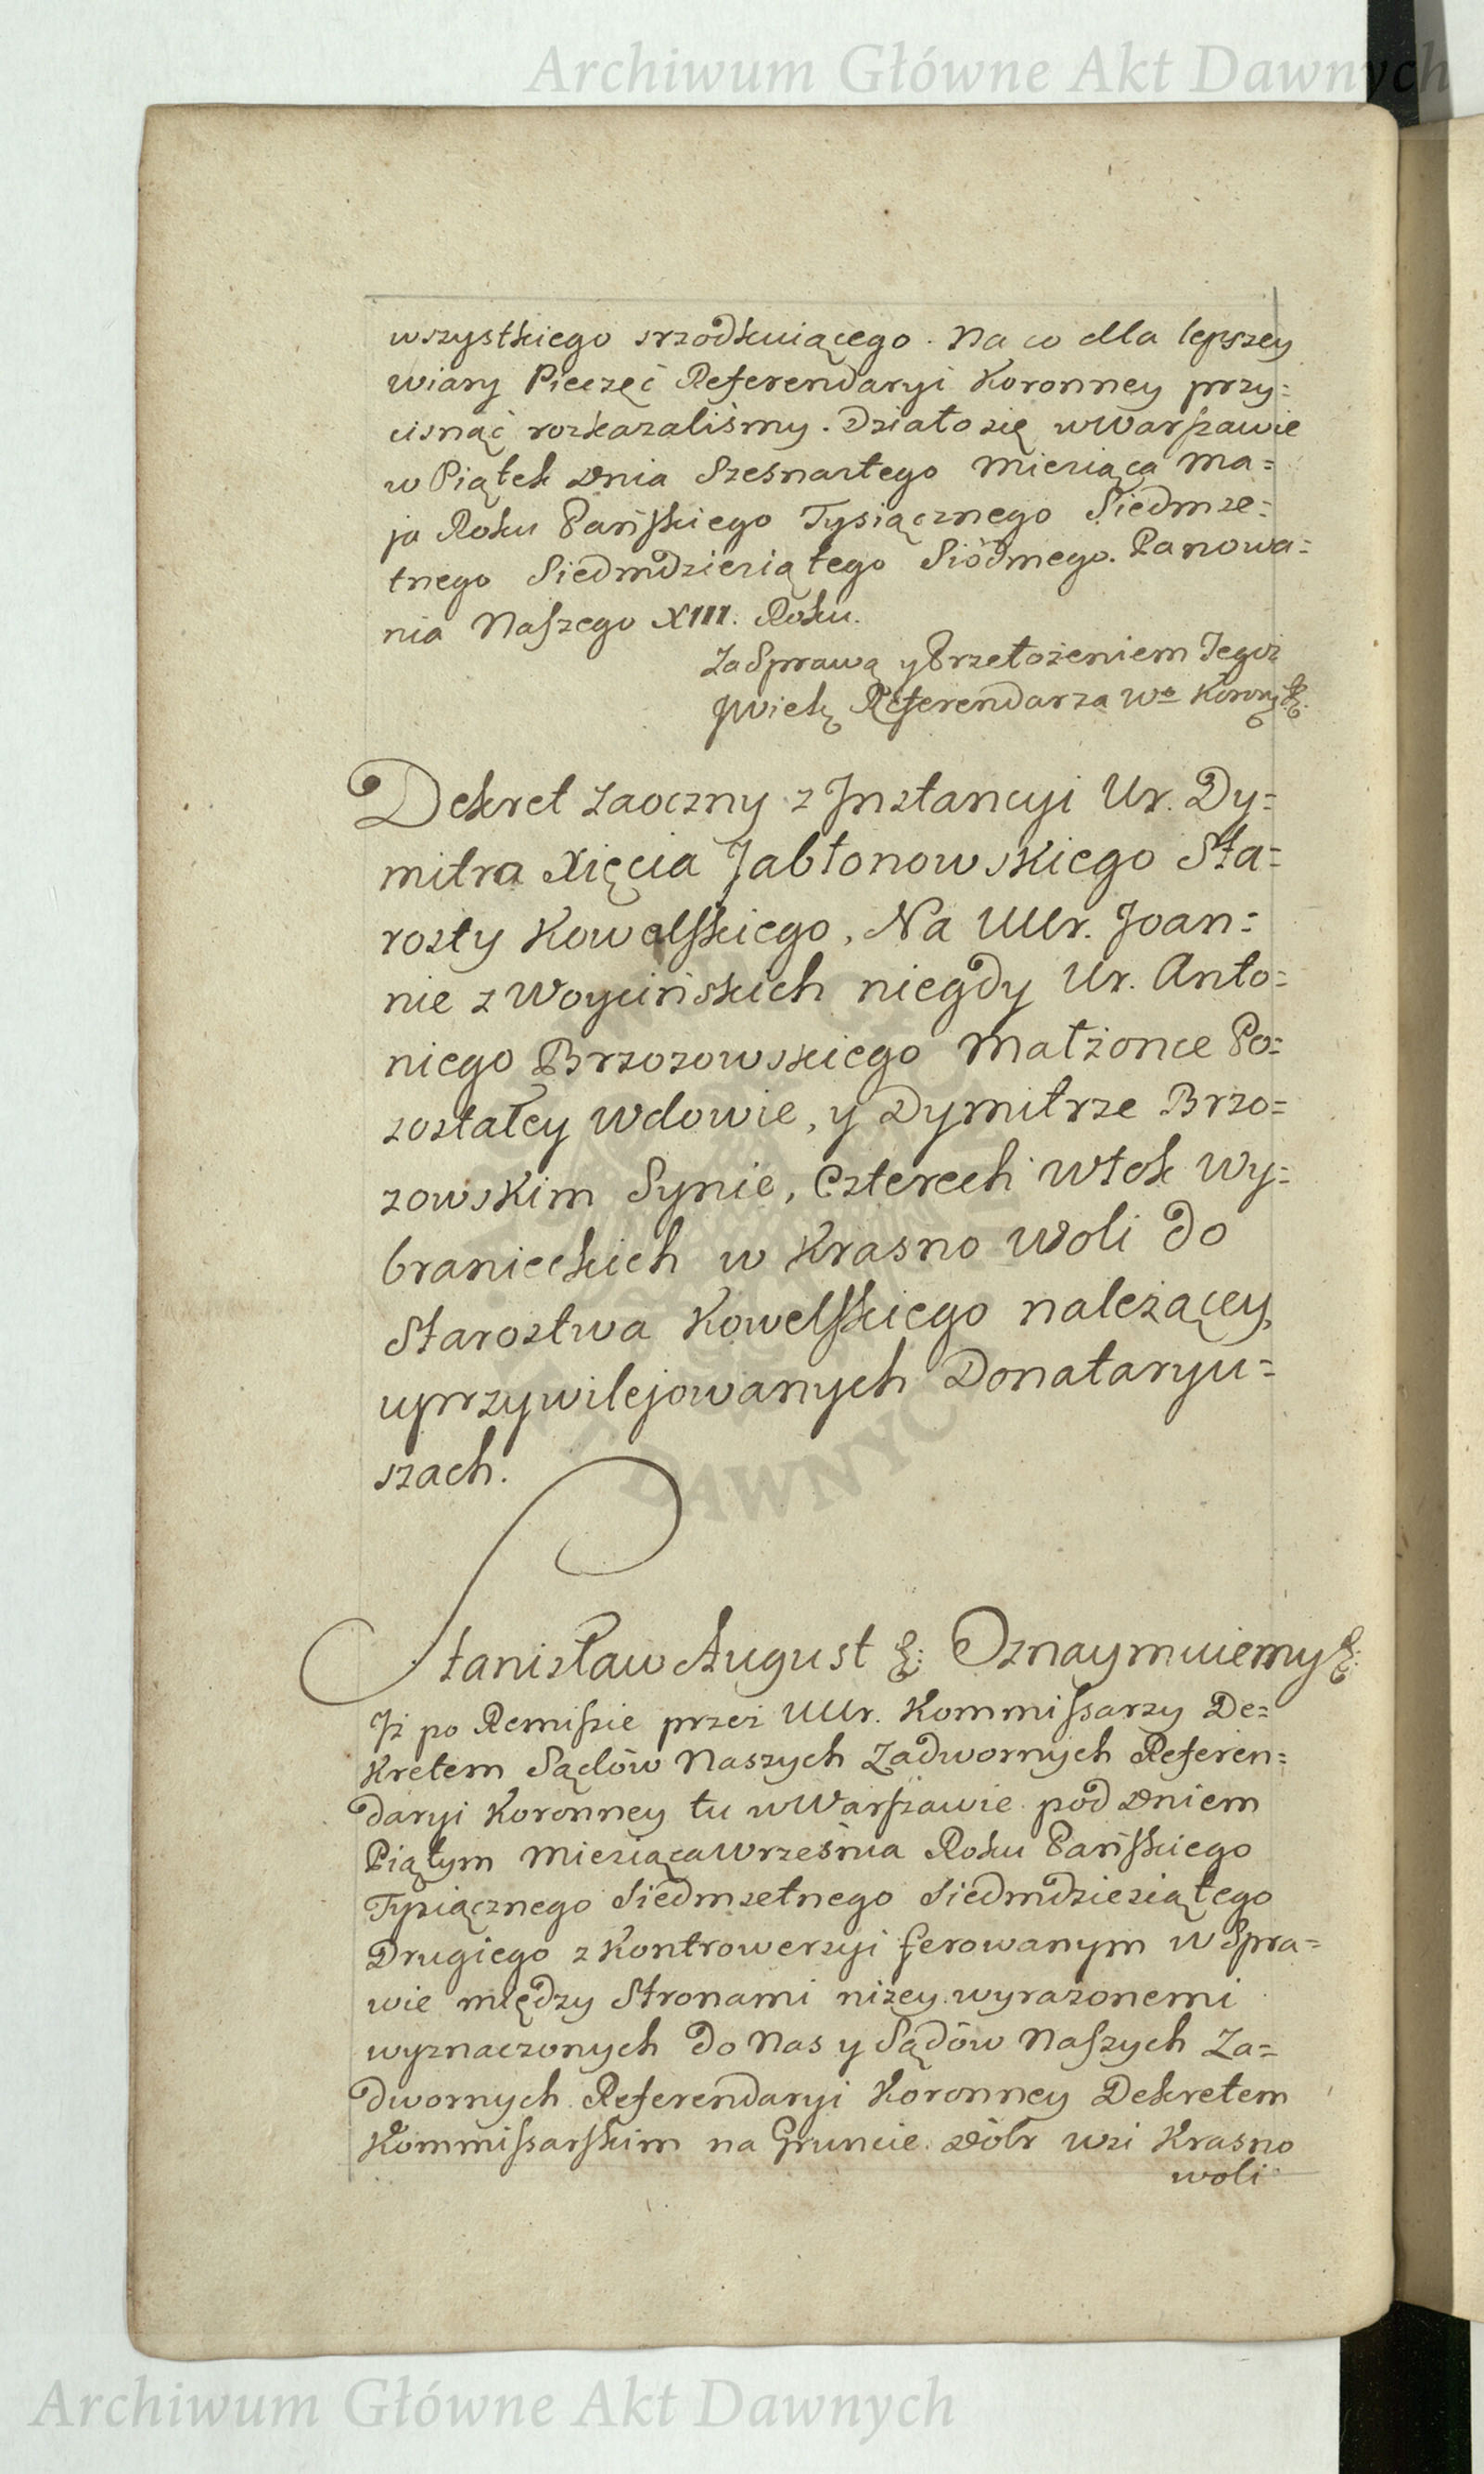 Archiwum Główne Akt Dawnych
wszystkiego srzodkuiącego. Na co dla lepszey
wiary Pieczęć Referendaryi Koronney przy=
cisnąć rozkazaliśmy. Działo się w Warszawie
w Piątek Dnia Szesnastego Miesiąca Ma=
ja Roku Pańskiego Tysiącznego Siedmse=
tnego Siedmdziesiątego Siódmego. Panowa=
nia Naszego XIII. Roku.
Za Sprawą y Przełożeniem Tegoż
Jwielż Referendarza Wo Korony &.
Dekret zaoczny z Jnstancyi Ur. Dy=
mitra Xięcia Jabłonowskiego Sta=
rosty Kowelskiego, Na UUr. Joan=
nie z Woycińskich niegdy Ur. Anto=
niego Brzozowskiego Małżonce Po=
zostałey Wdowie, y Dymitrze Brzo=
zowskim Synie, Czterech Włok Wy=
branieckich w Krasno Woli do
Starostwa Kowelskiego należącey,
uprzywilejowanych Donataryu=
szach.
Stanisław August &: Oznaymuiemy &:
Jż po Remissie przez UUr. Kommissarzy De=
kretem Sądów Naszych Zadwornych Referen=
daryi Koronney tu w Warszawie pod Dniem
Piątym Miesiąca Września Roku Pańskiego
Tysiącznego Siedmsetnego Siedmdziesiątego
Drugiego z Kontrowersyi ferowanym w Spra=
wie między Stronami niżey wyrażonemi
wyznaczonych do Nas y Sądów Naszych Za=
dwornych Referendaryi Koronney Dekretem
Kommissarskim na Gruncie Dóbr wsi Krasno
woli
Archiwum Główne Akt Dawnych